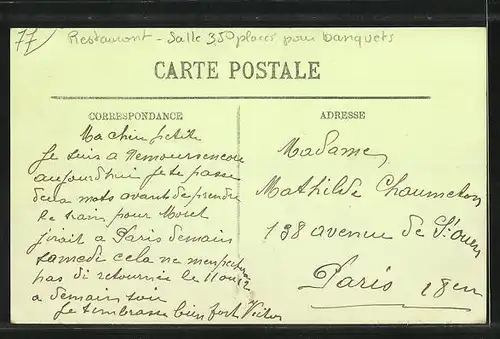 77
Restaurant - Salle 350 places pour banquets
CARTE POSTALE
CORRESPONDANCE
Ma petite
Je suis a Nemours encore
aujourdhui je te passe
deux mots avant de prendre
le train pour Moret
jirait a Paris demain
samedi cela ne
pas di retournée le 11 ou 12
a demain soir
Je tembrasse bien fort Victor
ADRESSE
Madame
Mathilde Chaumeton
138 avenue de St ouen
Paris 18em